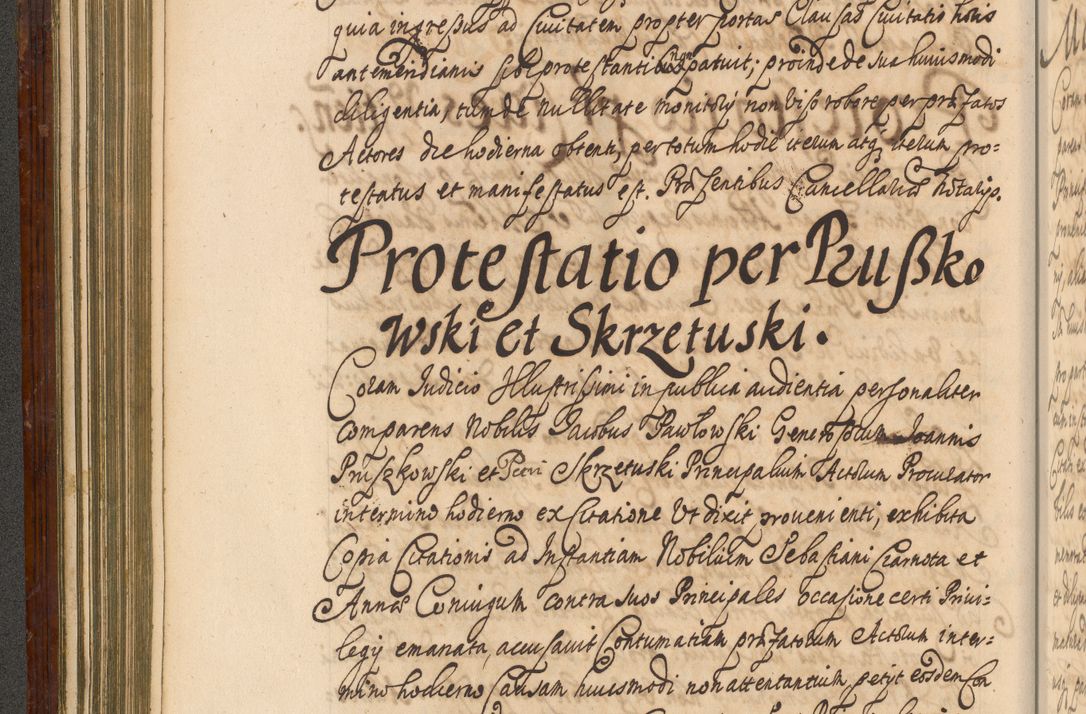 quia ingressus ad Civitatem propter portas Clausas Civitatis horis
antemeridianis sibi protestanti non patuit; proinde de sua huiusmodi
diligentia, tum de nullitate monitorij non viso robore per præfatos
Actores die hodierna obtenti, per totum hodie iterum atq; iterum pro=
testatus et manifestatus est. Præsentibus Cancellariæ Notarijs.
Protestatio per Pruszko
wski et Skrzetuski.
Coram Iudicio Illustrissimi in publica audientia personaliter
Comparens Nobilis Iacobus Pawlowski Generosorum Ioannis
Pruszkowski et Petri Skrzetuski Principalium Actorum Procurator
in termino hodierno ex Citatione Ut dixit provenienti, exhibita
Copia Citationis ad Instantiam Nobilium Sebastiani Czarnota et
Annæ Coniugum contra suos Principales occasione certi Privi=
legij emanata, accusavit Contumatiam præfatorum Actorum in ter=
mino hodierno Causam huiusmodi non attentantium, petijt eosdem Con